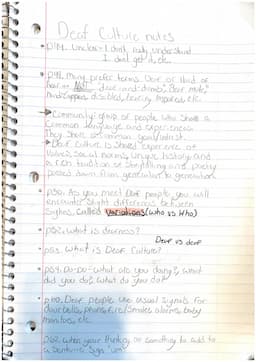 Deaf Culture notes
• p14. Unclear - I don't really understand
I don't get it, etc.
• p44. many prefer terms Deaf or Hard of
hearing NOT deaf and dumb, deaf mute,
handicapped, disabled, hearing impaired, etc.
→ Community: group of people who share a
common language and experiences.
They share a common goal/interest.
→ Deaf culture is shared experience of
values, social norms, unique history, and
a rich tradition of storytelling and poetry
passed down from generation to generation.
• p50. As you meet Deaf people you will
encounter slight differences between
signs, called variations (who vs who)
• p52. what is deafness?
Deaf vs deaf
• p53. What is Deaf Culture?
• p59. Do-Do - what are you doing?, what
did you do?, what do you do?
• p60. Deaf people use visual signals for
doorbells, phones, fire/smoke alarms, baby
monitors, etc.
p62. when your thinking on something to add to
a sentence sign "um"